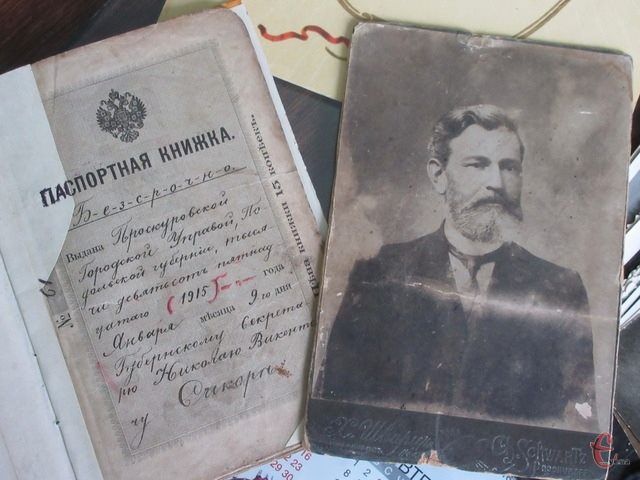 ПАСПОРТНАЯ КНИЖКА.
Б-е-з-с-р-о-ч-н-о
Выдана Проскуровской
Городской Управой, По
дольской губерніи, тыся
ча девятьсотъ пятнад
цатаго (1915) года
Января мѣсяца 9-го дня
Губернскому Секрета
рю Николаю Викенть
чу
Цѣна книжки 15 копѣекъ.
№ 61
Х. Шварцъ